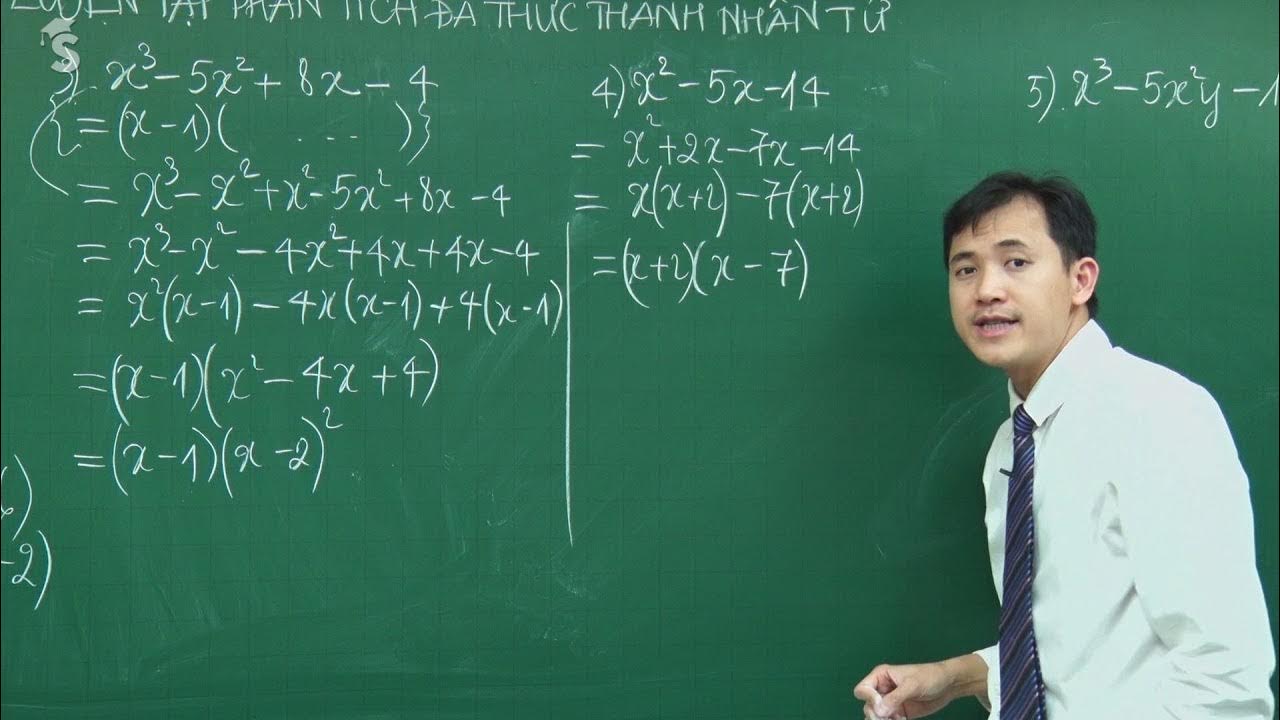 LUYỆN TẬP PHÂN TÍCH ĐA THỨC THÀNH NHÂN TỬ
3) x³ − 5x² + 8x − 4
{= (x−1)( ... )}
= x³ − x² + x² − 5x² + 8x − 4
= x³ − x² − 4x² + 4x + 4x − 4
= x²(x−1) − 4x(x−1) + 4(x−1)
= (x−1)(x² − 4x + 4)
= (x−1)(x−2)²
−2)
4) x² − 5x − 14
= x² + 2x − 7x − 14
= x(x+2) − 7(x+2)
= (x+2)(x − 7)
5) x³ − 5x²y − 1